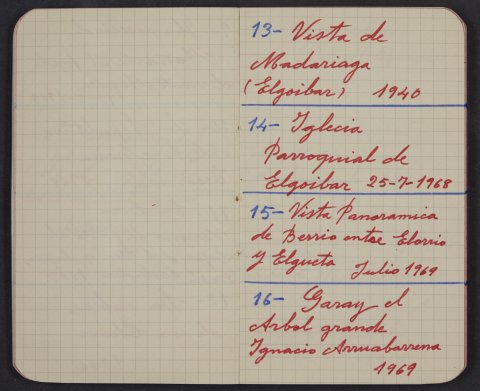 13- Vista de
Madariaga
(Elgoibar) 1940
14- Iglecia
Parroquial de
Elgoibar 25-7-1968
15- Vista Panoramica
de Berrio entre Elorrio
y Elgueta Julio 1969
16- Garay el
Arbol grande
Ignacio Arruabarrena
1969